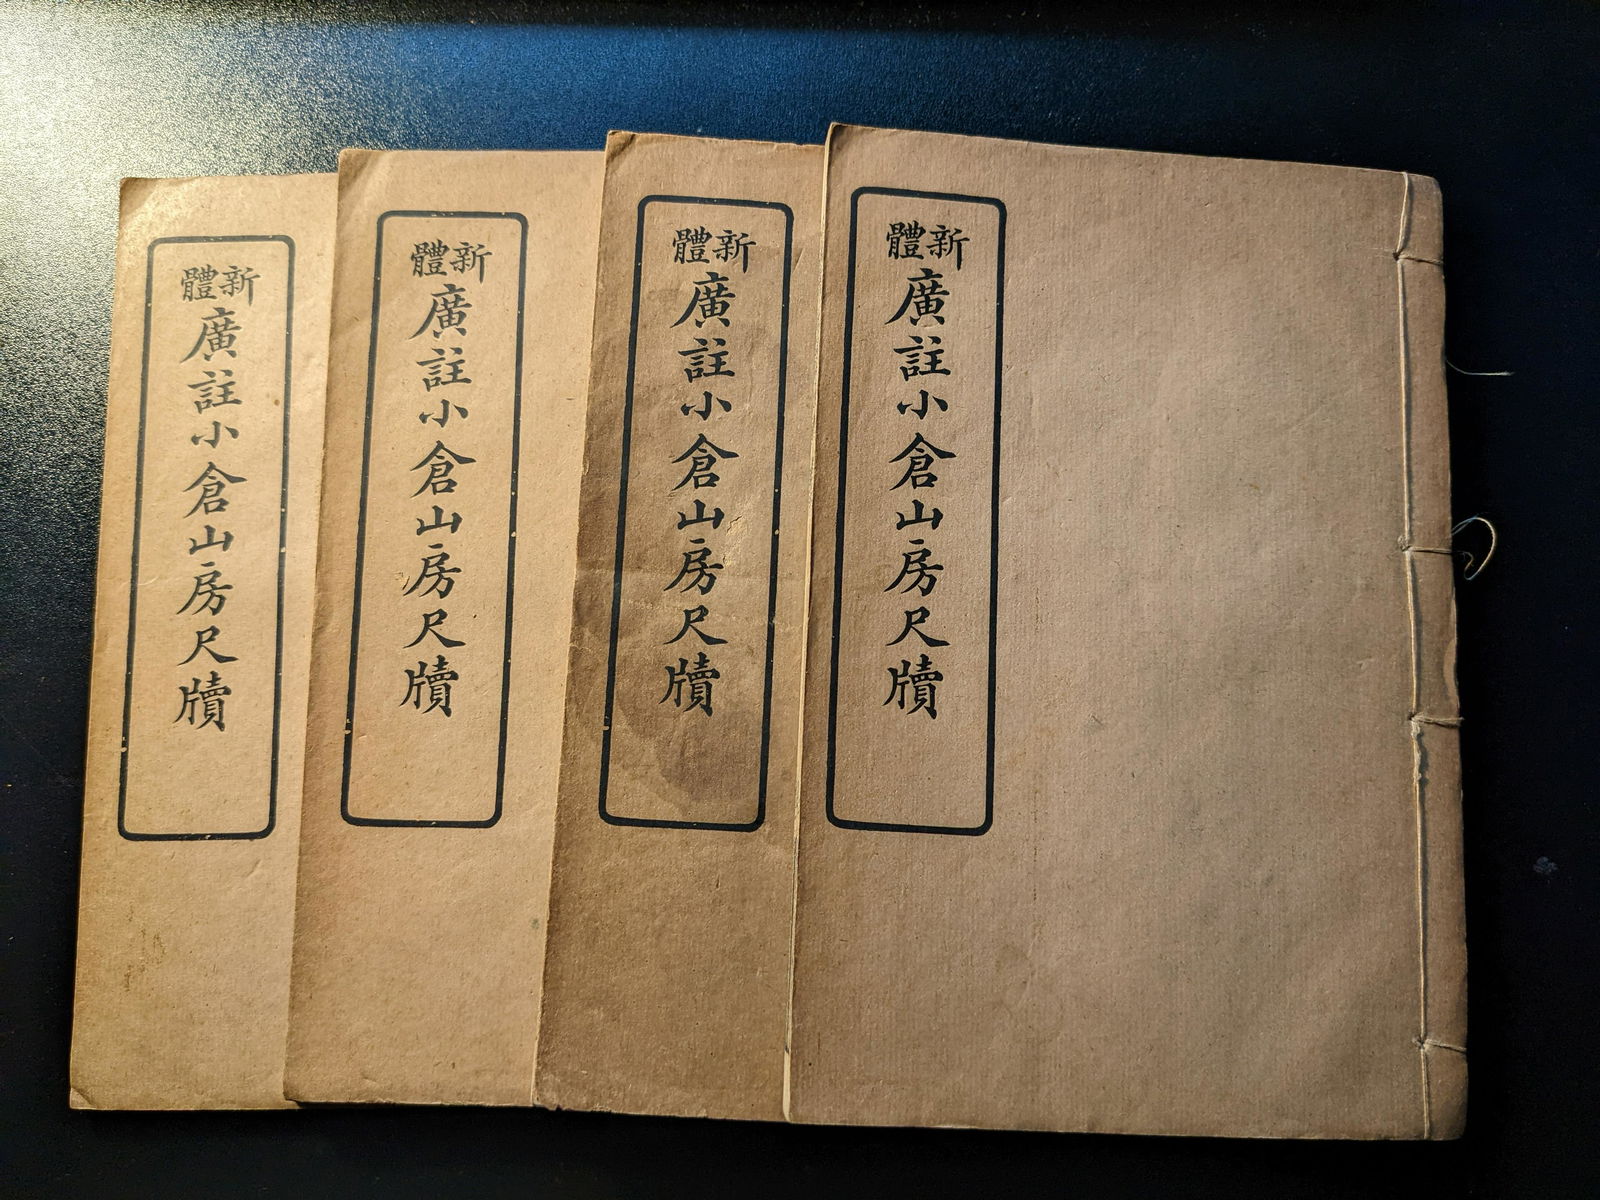 新體
廣註小倉山房尺牘
新體
廣註小倉山房尺牘
新體
廣註小倉山房尺牘
新體
廣註小倉山房尺牘